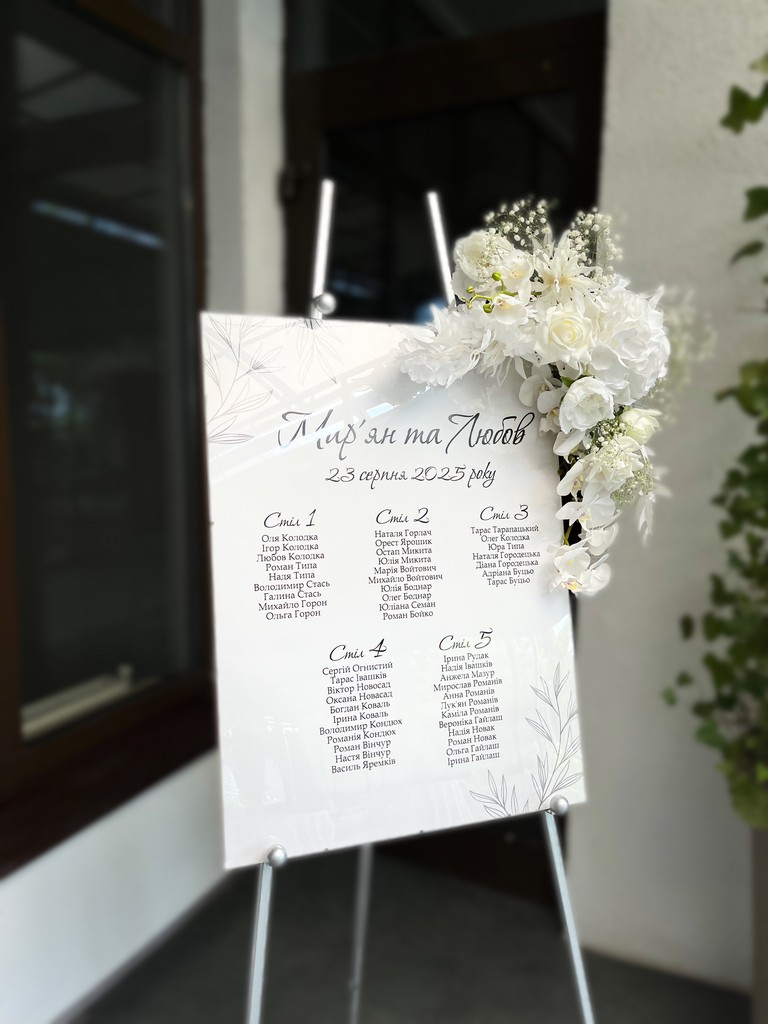 Мир'ян та Любов
23 серпня 2025 року
Стіл 1
Оля Колодка
Ігор Колодка
Любов Колодка
Роман Типа
Надя Типа
Володимир Стась
Галина Стась
Михайло Горон
Ольга Горон
Стіл 2
Наталя Горлач
Орест Ярошик
Остап Микита
Юлія Микита
Марія Войтович
Михайло Войтович
Юлія Боднар
Олег Боднар
Юліана Семан
Роман Бойко
Стіл 3
Тарас Тарапацький
Олег Колодка
Юра Типа
Наталя Городецька
Діана Городецька
Адріана Буцьо
Тарас Буцьо
Стіл 4
Сергій Огнистий
Тарас Івашків
Віктор Новосад
Оксана Новасад
Богдан Коваль
Ірина Коваль
Володимир Кондюх
Романія Кондюх
Роман Вінчур
Настя Вінчур
Василь Яремків
Стіл 5
Ірина Рудак
Надія Івашків
Анжела Мазур
Мирослав Романів
Анна Романів
Лук'ян Романів
Каміла Романів
Вероніка Гайлаш
Надія Новак
Роман Новак
Ольга Гайлаш
Ірина Гайлаш